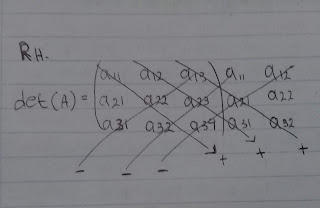 RH.
a11 a12 a13 a11 a12
det (A) = a21 a22 a23 a21 a22
a31 a32 a34 a31 a32
+ + +
- - -